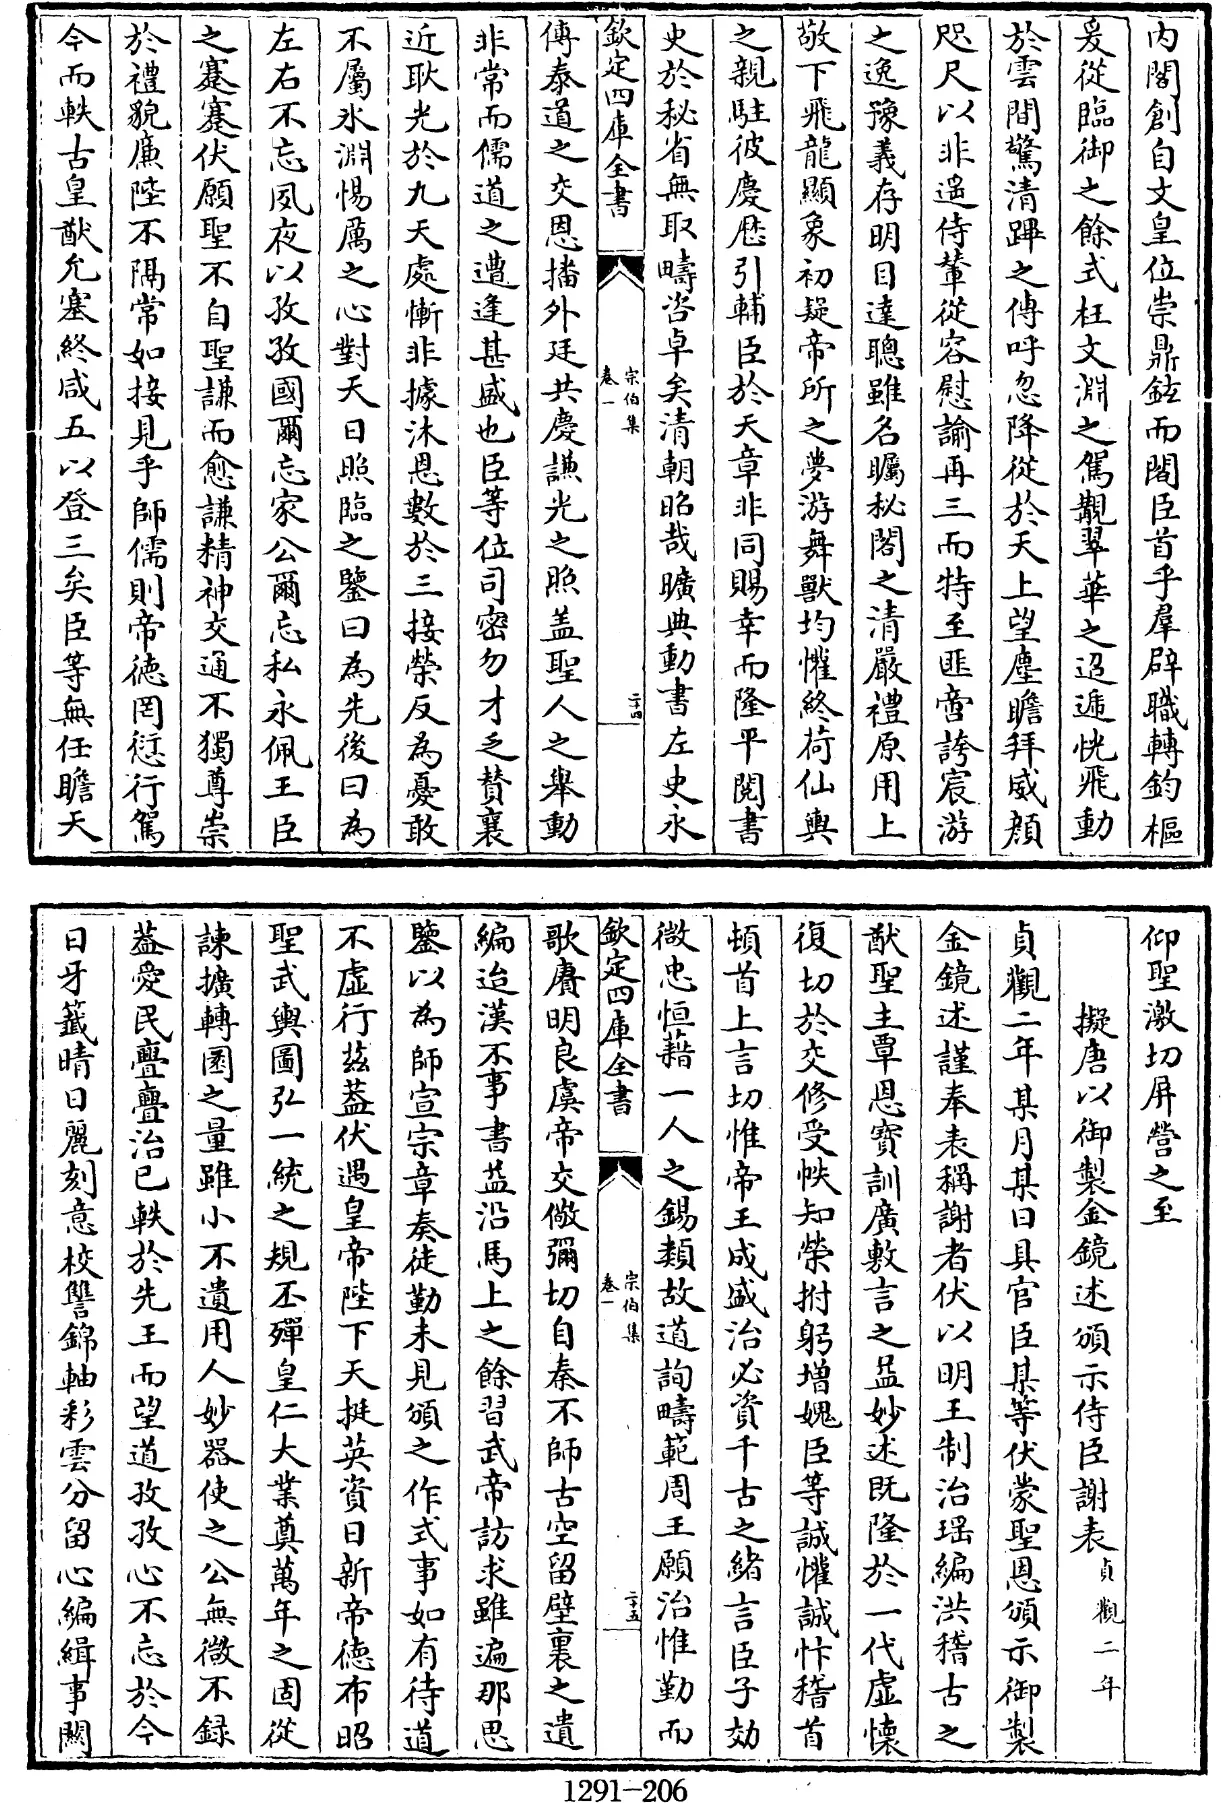 內閣創自文皇位崇鼎鉉而閣臣首乎羣辟職轉鈞樞
爰從臨御之餘式枉文淵之駕覯翠華之迢遞恍飛動
於雲間驚清蹕之傳呼忽降從於天上望塵瞻拜威顏
咫尺以非遥侍輦從容慰諭再三而特至匪啻誇宸游
之逸豫義存明目達聰雖名矚秘閣之清嚴禮原用上
敬下飛龍顯象初疑帝所之夢游舞獸均懽終荷仙輿
之親駐彼慶厯引輔臣於天章非同賜幸而隆平閱書
史於秘省無取疇咨卓矣清朝昭哉曠典動書左史永
欽定四庫全書
宗伯集
卷一
二十四
傳泰道之交恩播外廷共慶謙光之照盖聖人之舉動
非常而儒道之遭逢甚盛也臣等位司密勿才乏賛襄
近耿光於九天處慚非據沐恩數於三接榮反為憂敢
不屬氷淵惕厲之心對天日照臨之鑒曰為先後曰為
左右不忘夙夜以孜孜國爾忘家公爾忘私永佩王臣
之蹇蹇伏願聖不自聖謙而愈謙精神交通不獨尊崇
於禮貌廉陛不隔常如接見乎師儒則帝德罔愆行駕
今而軼古皇猷允塞終咸五以登三矣臣等無任瞻天
仰聖激切屏營之至
擬唐以御製金鏡述頒示侍臣謝表貞觀二年
貞觀二年某月某日具官臣某等伏蒙聖恩頒示御製
金鏡述謹奉表稱謝者伏以明王制治瑶編洪稽古之
猷聖主覃恩寶訓廣敷言之益妙述既隆於一代虚懷
復切於交修受帙知榮拊躬增媿臣等誠懽誠忭稽首
頓首上言切惟帝王成盛治必資千古之緒言臣子効
微忠恒藉一人之錫類故道詢疇範周王願治惟勤而
欽定四庫全書
宗伯集
卷一
二十五
歌賡明良虞帝交儆彌切自秦不師古空留壁裏之遺
編迨漢不事書益沿馬上之餘習武帝訪求雖遍那思
鑒以為師宣宗章奏徒勤未見頒之作式事如有待道
不虚行兹葢伏遇皇帝陛下天挺英資日新帝德布昭
聖武輿圖弘一統之規丕殫皇仁大業奠萬年之固從
諫擴轉圜之量雖小不遺用人妙器使之公無微不録
葢愛民亹亹治已軼於先王而望道孜孜心不忘於今
日牙籤晴日麗刻意校讐錦軸彩雲分留心編緝事闗
1291-206